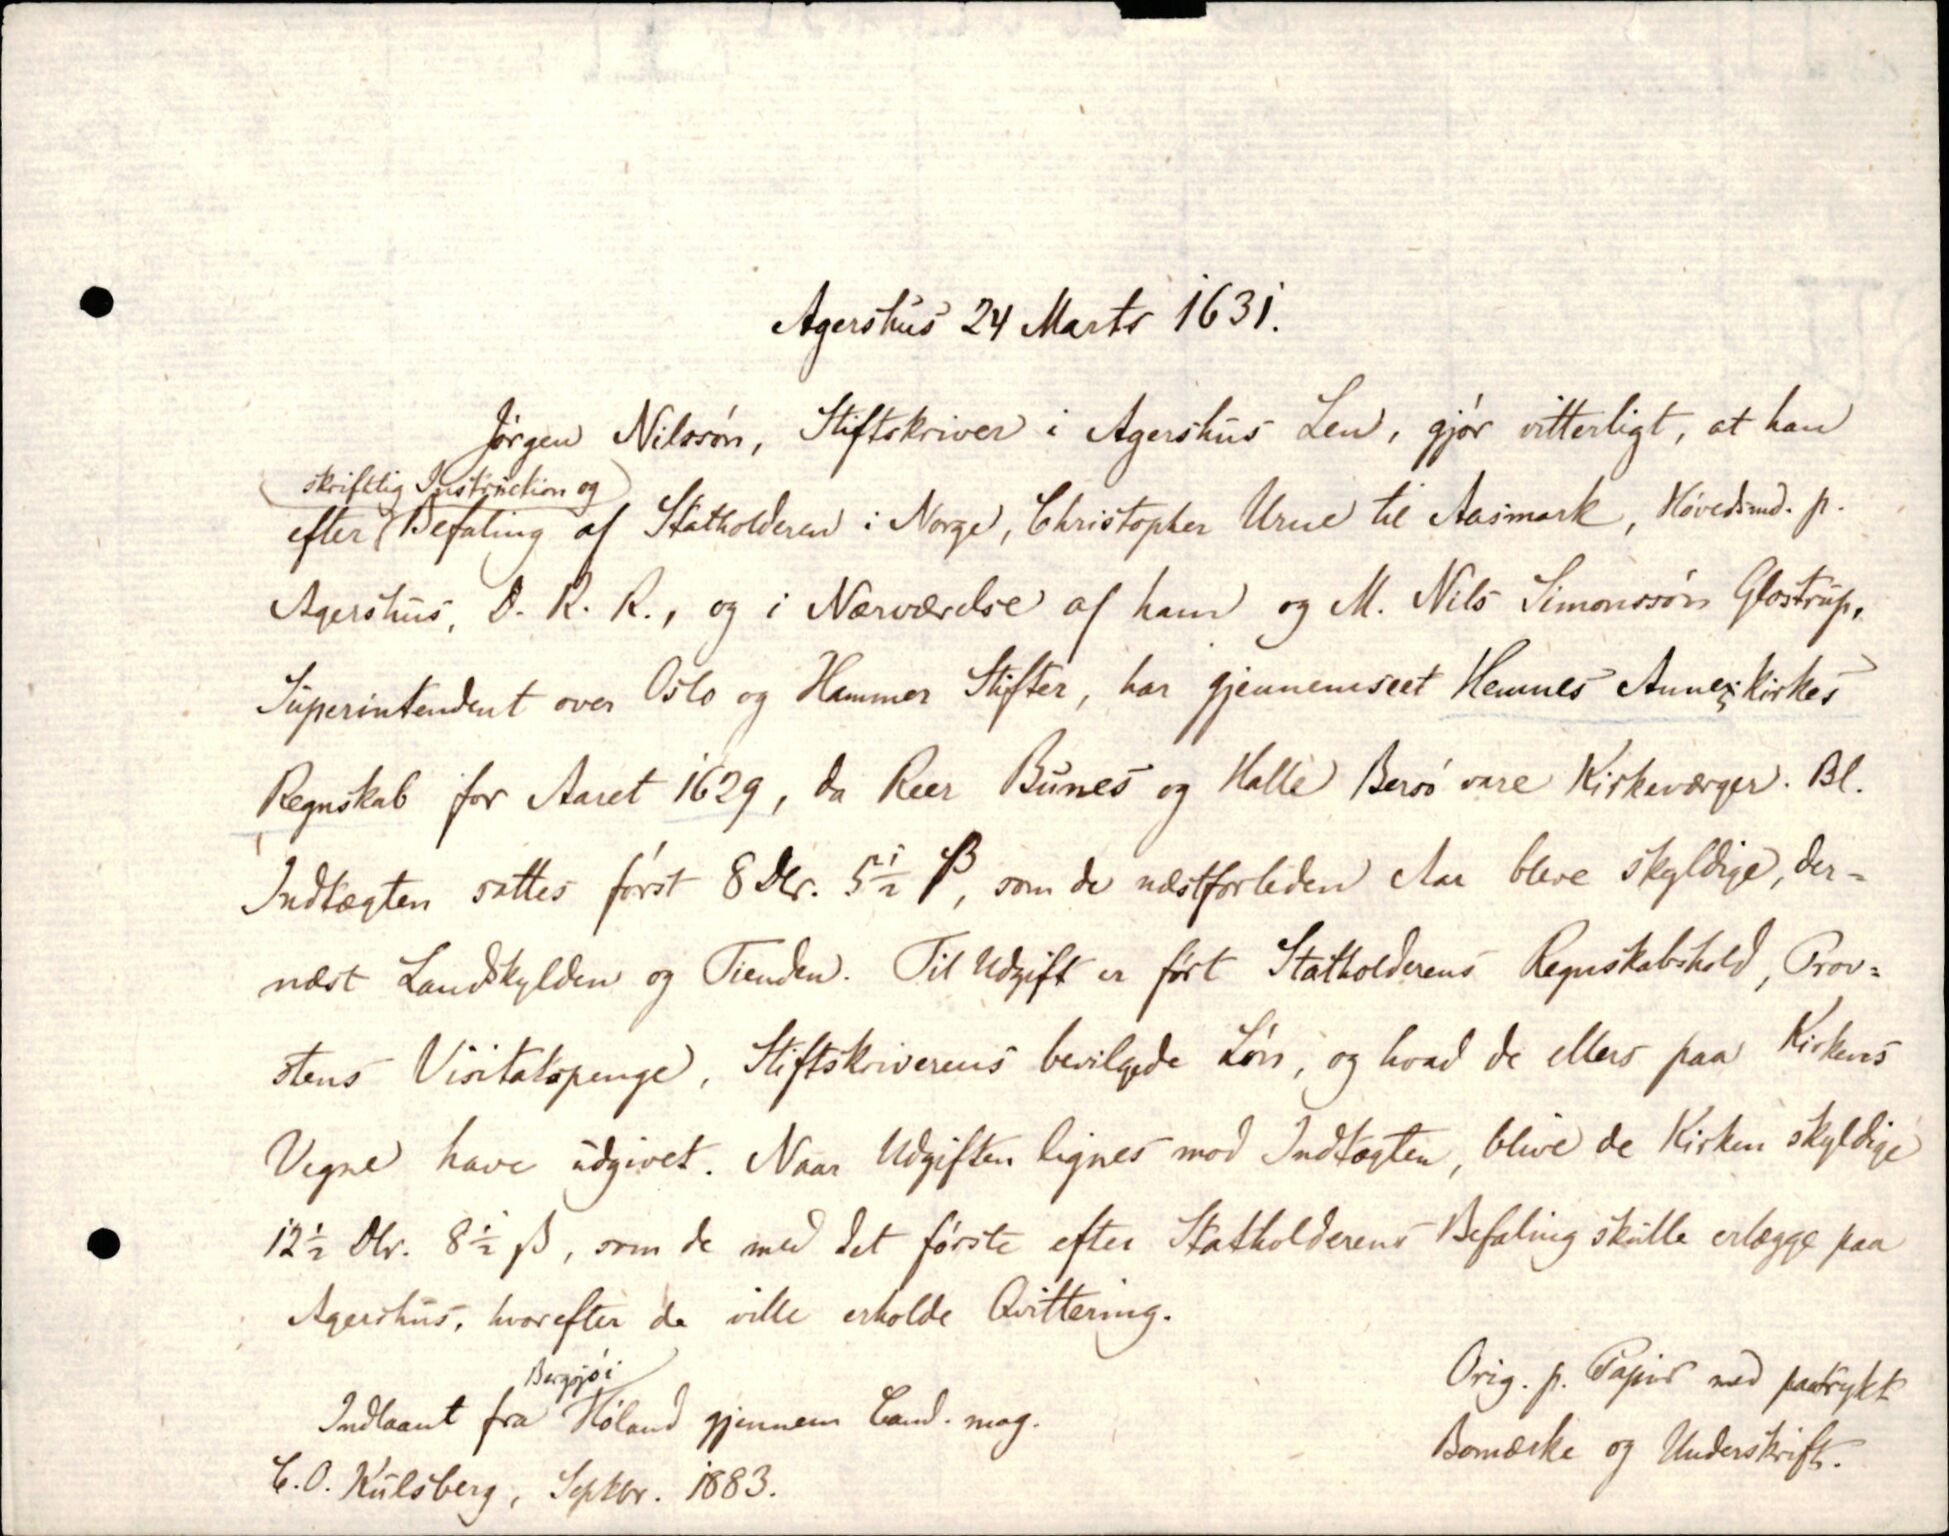 Agershus 24 Marts 1631.
Jörgen Nilssön, Stiftskriver i Agershus Len, gjör vitterligt, at han
skriftlig Instruction og
efter Befaling af Statholderen i Norge, Christopher Urne til Aasmark, Hövedsmd. p.
Agershus, D. R. R., og i Nærværelse af ham og M. Nils Simonssön Glostrup,
Superintendent over Oslo og Hammer Stifter, har gjennemseet Hemnes Annexkirkes
Regnskab for Aaret 1629, da Reer Bunes og Halle Bersö vare Kirkeværger. Bl.
Indtægten sattes först 8 Dlr. 5½ ß, som de næstforleden Aar bleve skyldige, der=
næst Landskylden og Tienden. Til Udgift er fört Statholderens Regnskabshold, Prov=
stens Visitatspenge, Stiftskriverens bevilgede Lön, og hvad de ellers paa Kirkens
Vegne have udgivet. Naar Udgiften lignes mod Indtægten, blive de Kirken skyldige
12½ Dlr. 8½ ß, som de med det förste efter Statholderens Befaling skulle erlægge paa
Agershus, hvorefter de ville erholde Qvittering.
Orig. p. Papir med paatrykt
Bomærke og Underskrift.
Indlaant fra Höland gjennem Cand. mag.
C. O. Kulsberg, Septbr. 1883.